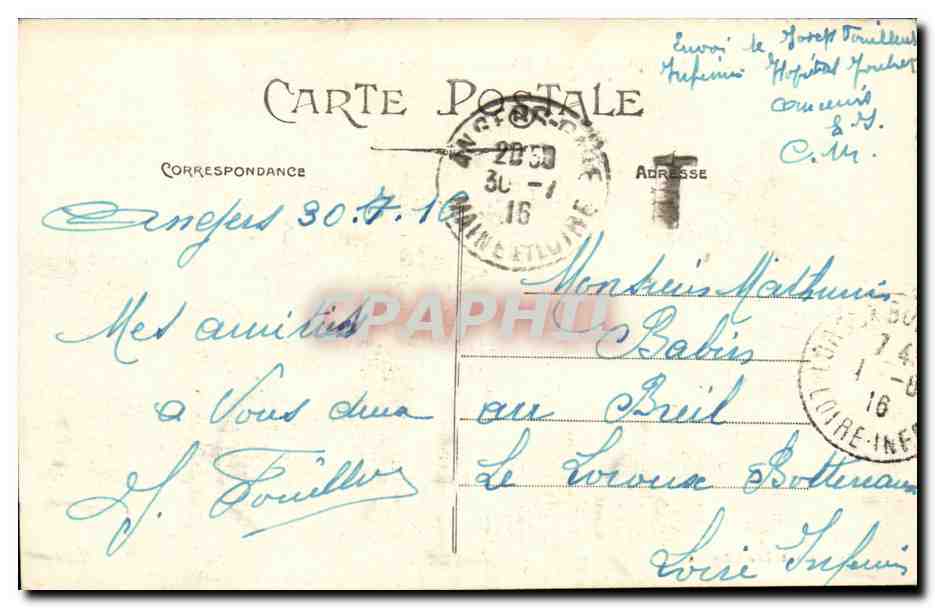 Envoi de Joseph
Hôpital
C. M.
CARTE POSTALE
CORRESPONDANCE
ADRESSE
T
ANGERS-GARE
20 30
30 -7
16
MAINE ET LOIRE
Angers 30.7.16
Mes amitiés
a Vous deux
J.
CPAPHIL
Monsieur Mathurin
Babin
au Breil
Le Loroux Bottereau
Loire Infer
7 4
1 -8
16
LOIRE-INF